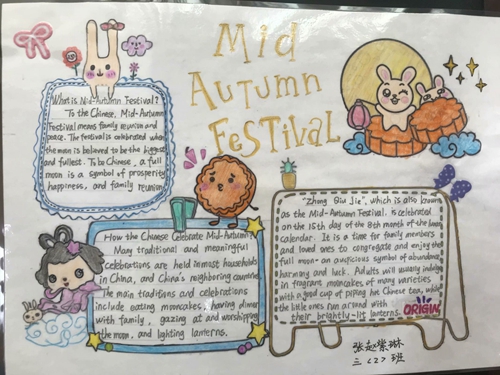 Mid
Autumn
Festival
What is Mid-Autumn Festival?
To the Chinese, Mid-Autumn
Festival means family reunion and
peace. The festival is celebrated when
the moon is believed to be the biggest
and fullest. To be Chinese, a full
moon is a symbol of prosperity,
happiness, and family reunion
How the Chinese Celebrate Mid-Autumn?
Many traditional and meaningful
celebrations are held in most households
in China, and China's neighboring countries
The main traditions and celebrations
include eating mooncakes, having dinner
with family, gazing at and worshipping
the moon, and lighting lanterns.
"Zhong Qiu Jie", which is also known
as the Mid-Autumn Festival. is celebrated
on the 15th day of the 8th month of the lunar
calendar. It is a time for family members
and loved ones to congregate and enjoy the
full moon - an auspicious symbol of abundance,
harmony and luck. Adults will usually indulge
in fragrant mooncakes of many varieties
with a good cup of piping hot Chinese tea, while
the little ones run around with
their brightly-lit lanterns.
ORIGIN
张赵紫琳
三〈2〉班